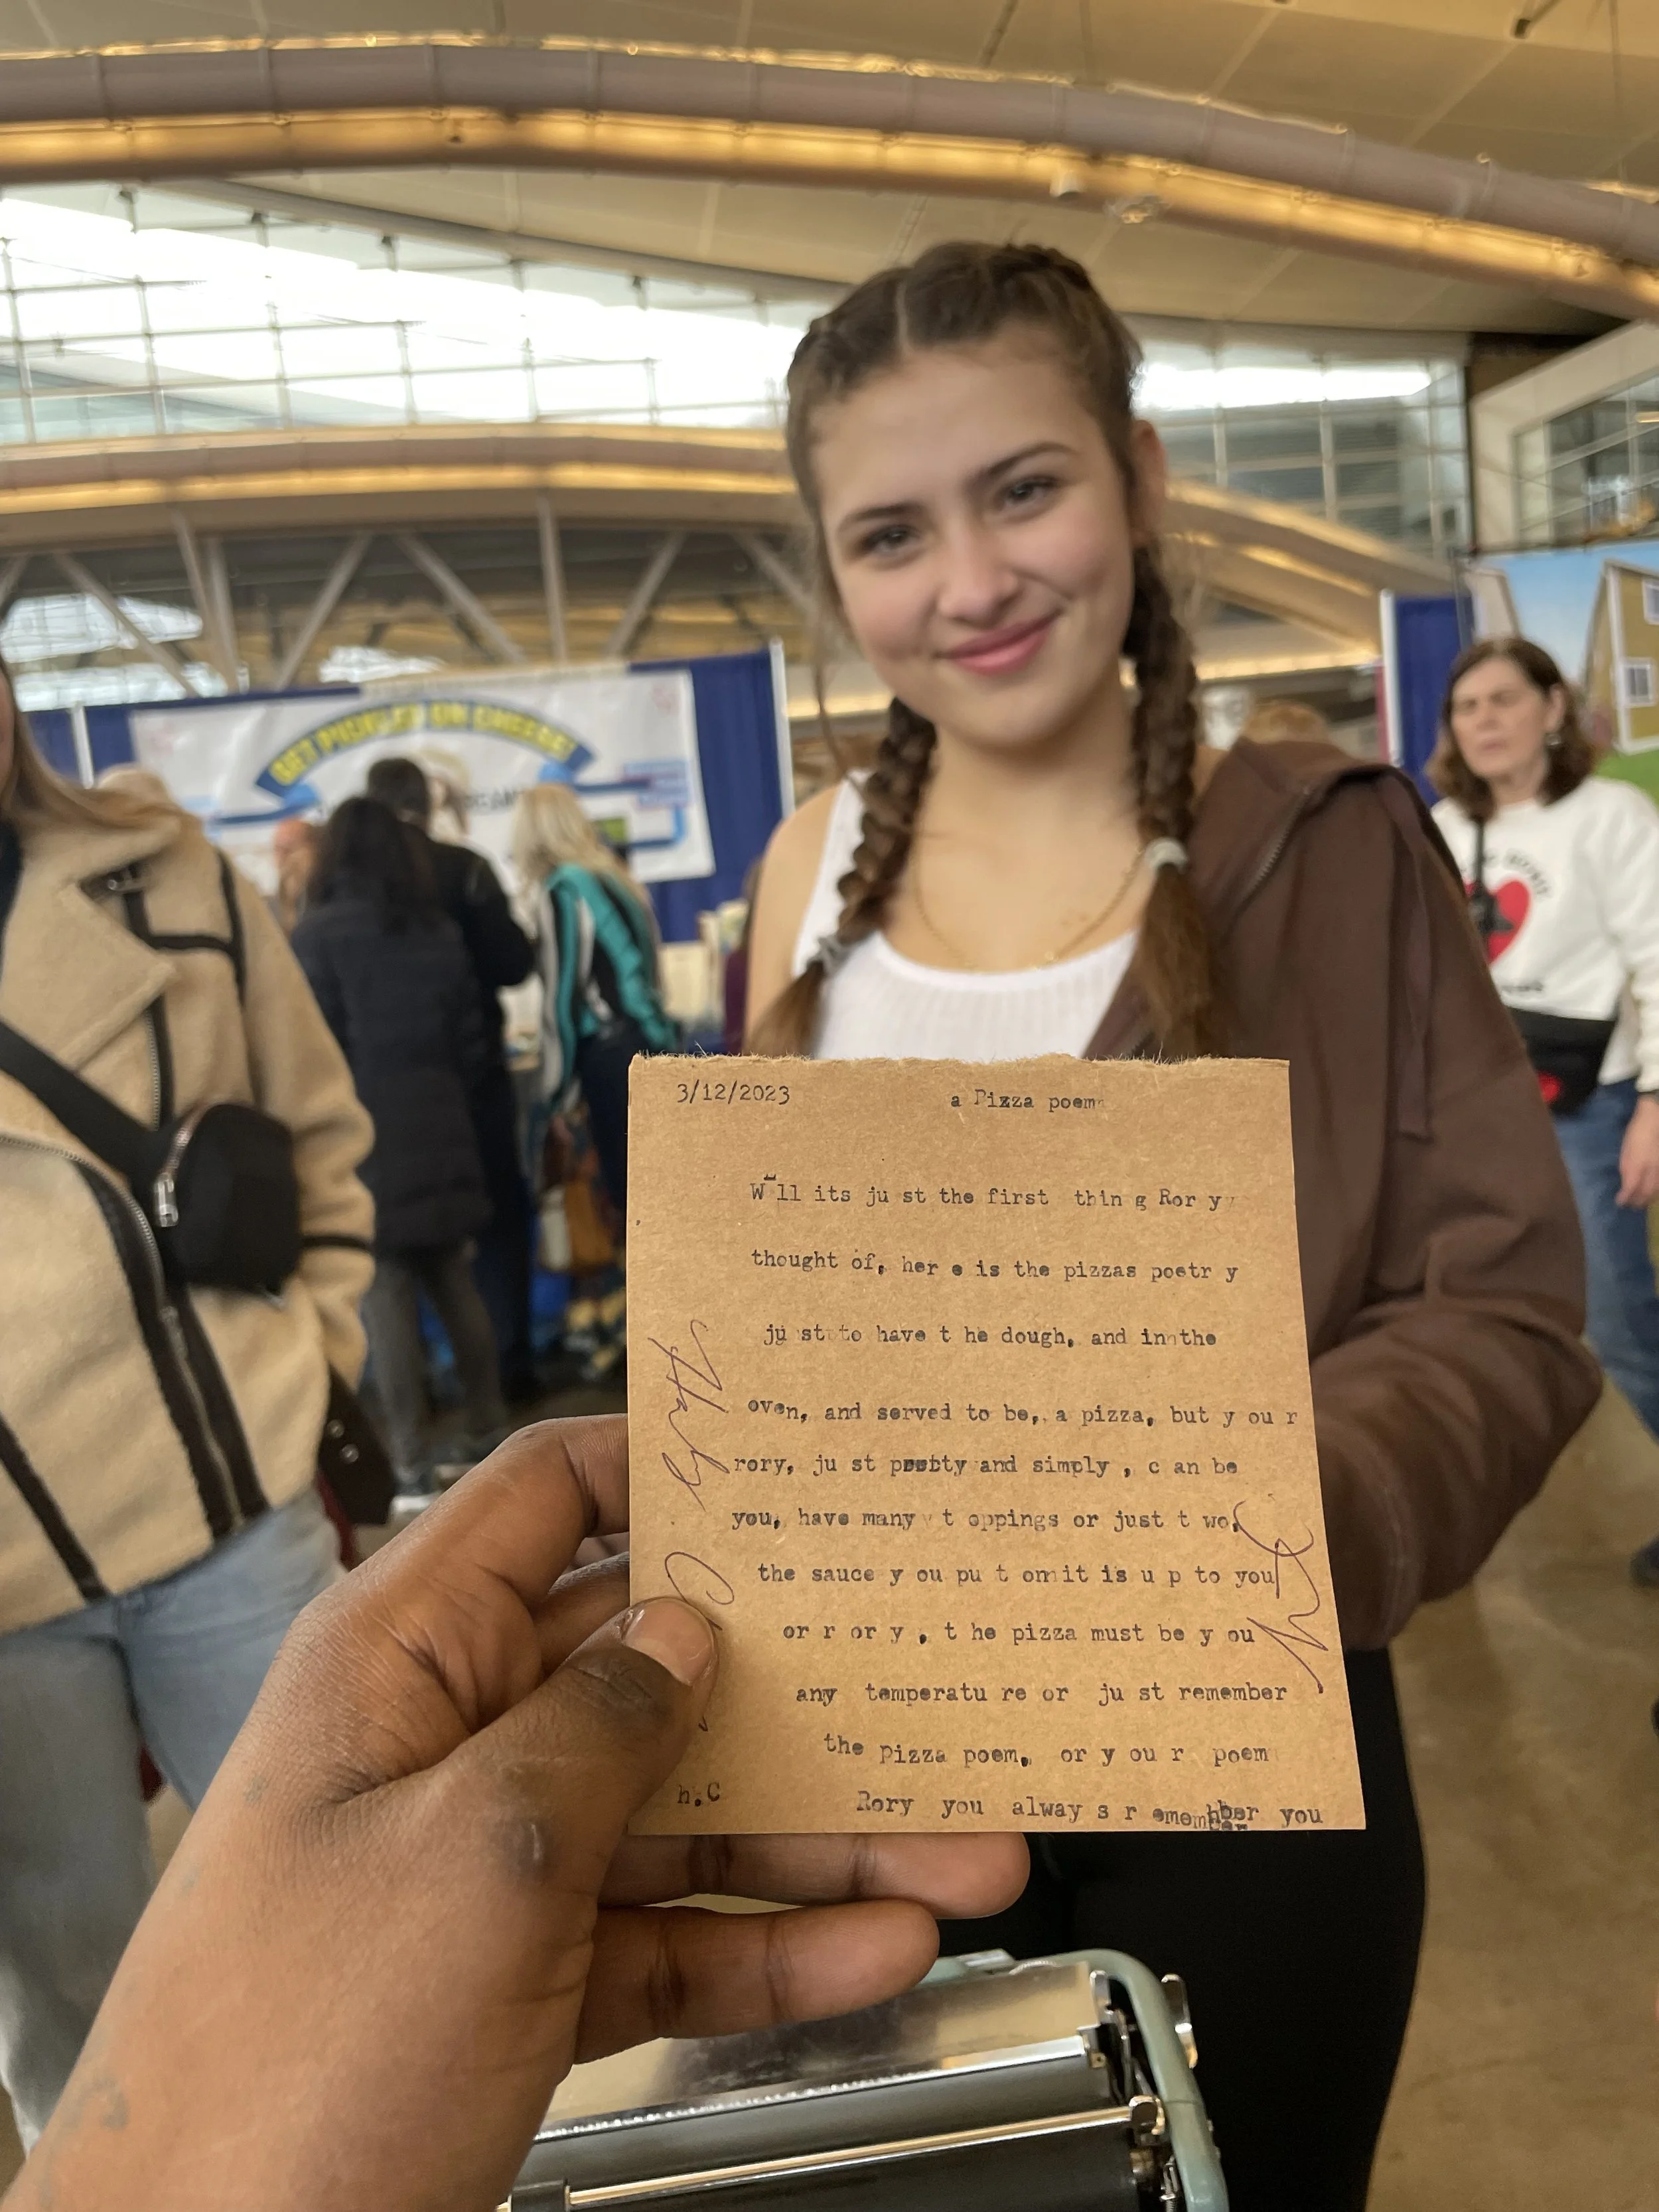 GET PICKLED ON CHEESE!
3/12/2023 a Pizza poem
W ll its ju st the first thin g Ror y
thought of, her e is the pizzas poetr y
ju st to have t he dough, and in the
oven, and served to be,. a pizza, but y ou r
rory, ju st and simply , c an be
you, have many t oppings or just t wo,
the sauce y ou pu t on it is u p to you
or r or y , t he pizza must be y ou
any temperatu re or ju st remember
the pizza poem, or y ou r poem
h.C Rory you alway s r emember you